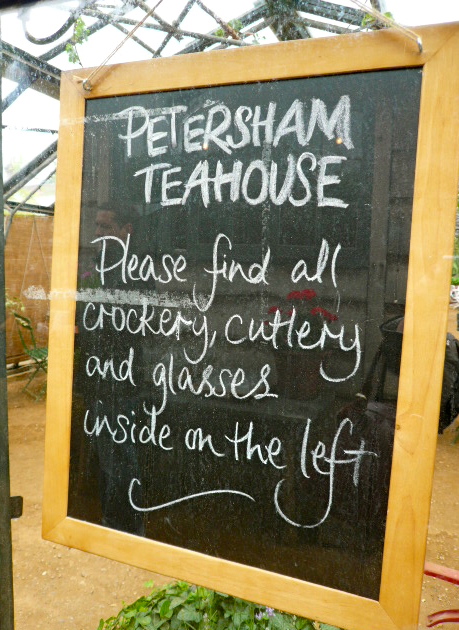 PETERSHAM
TEAHOUSE
Please find all
crockery, cutlery
and glasses
inside on the left